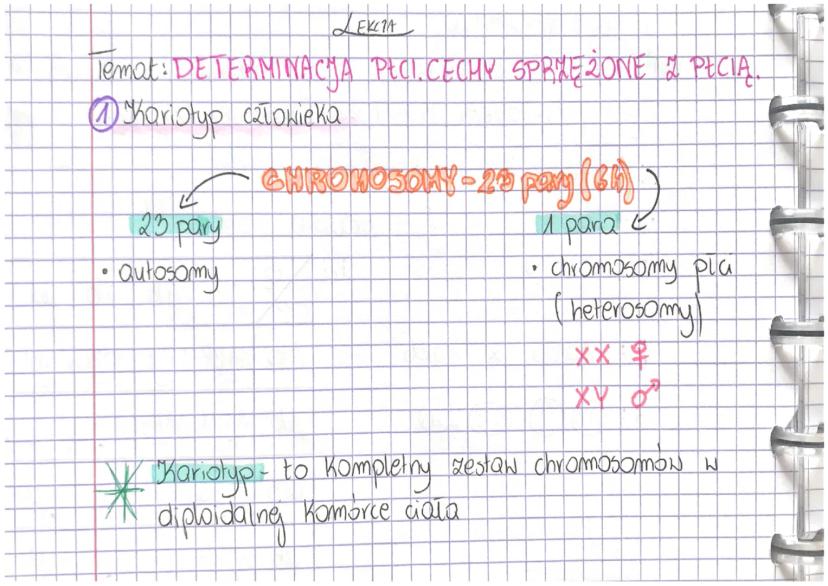 LEKCJA
Temat: DETERMINACJA PŁCI. CECHY SPRZĘŻONE Z PŁCIĄ.
1 Kariotyp człowieka
CHROMOSOMY - 23 pary (64)
23 pary
1 para
• autosomy
• chromosomy płci
(heterosomy)
XX ♀
XY ♂
Kariotyp - to kompletny zestaw chromosomów w
diploidalnej komórce ciała